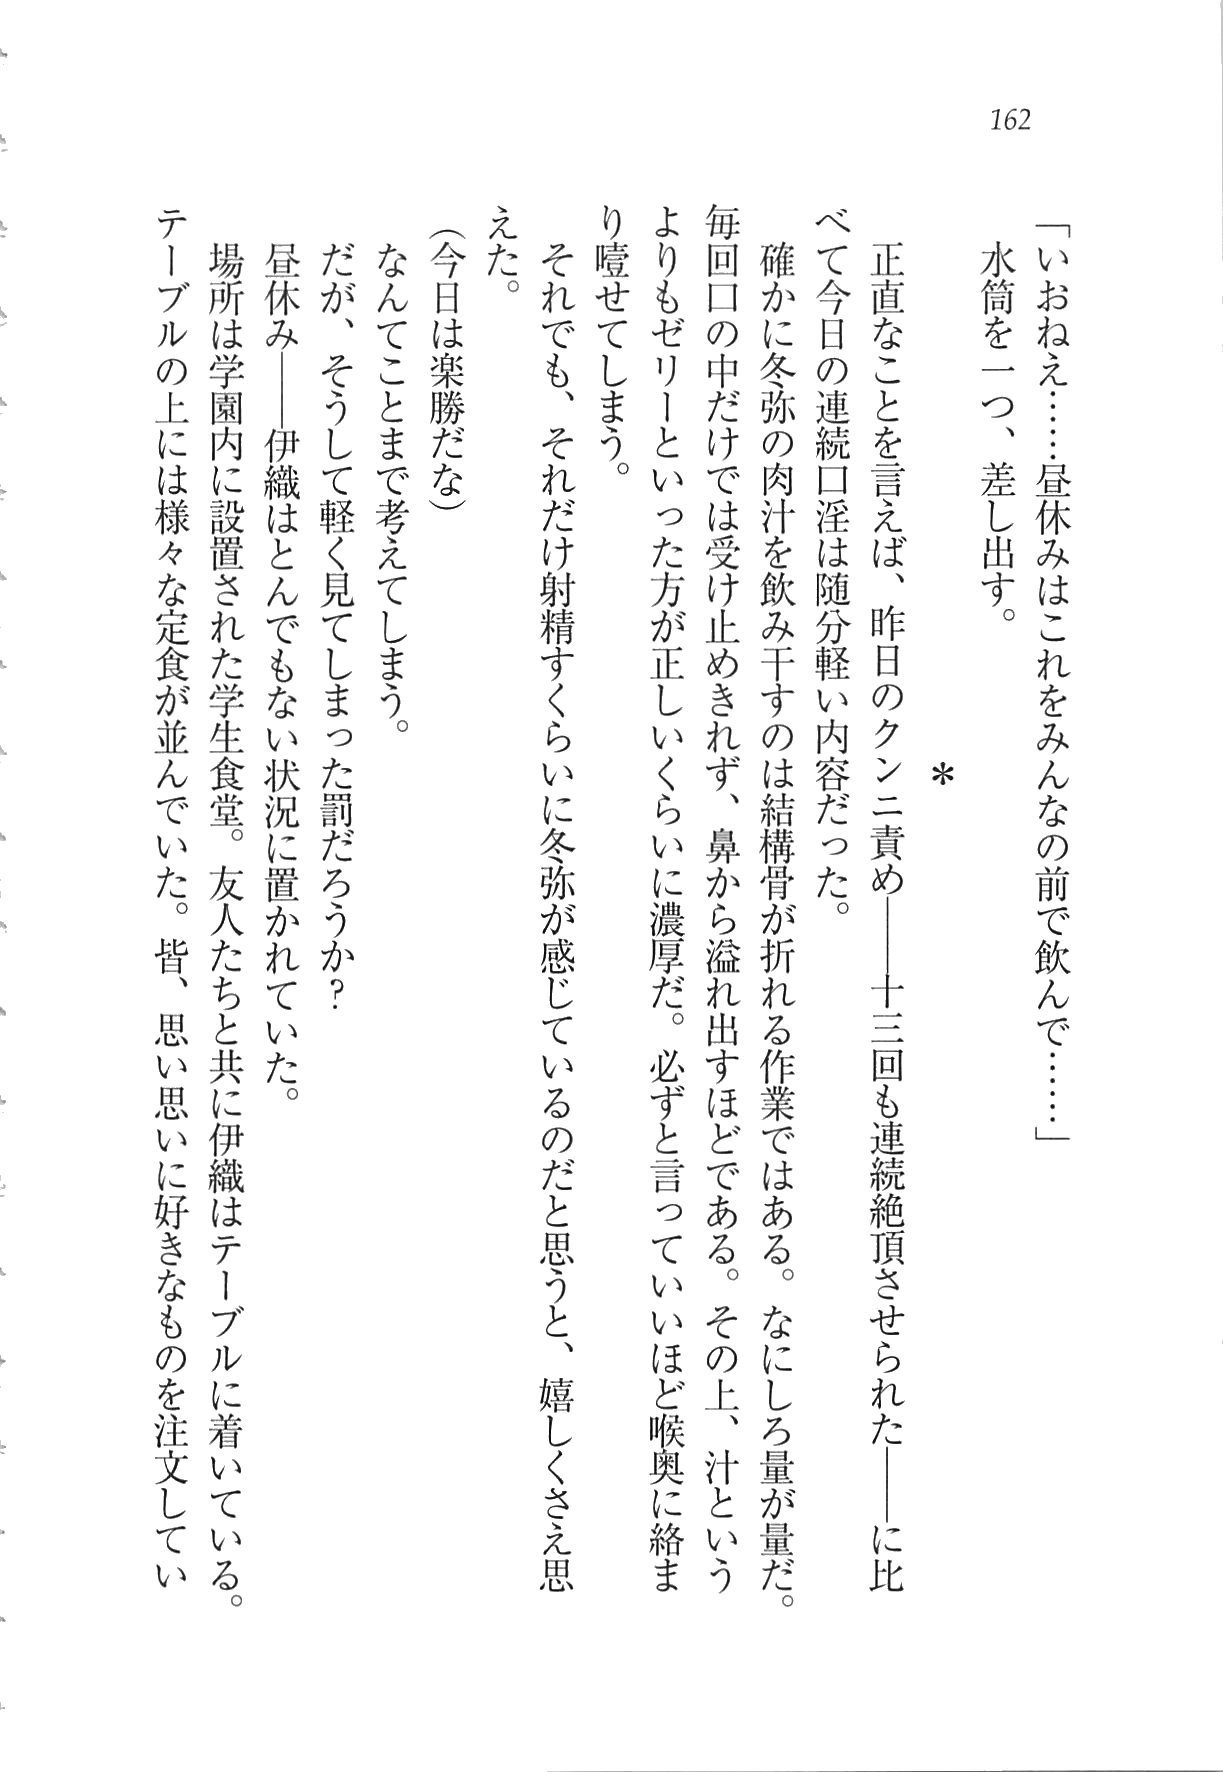 162
「いおねえ……昼休みはこれをみんなの前で飲んで……」
水筒を一つ、差し出す。
＊
正直なことを言えば、昨日のクンニ責め――十三回も連続絶頂させられた――に比
べて今日の連続口淫は随分軽い内容だった。
確かに冬弥の肉汁を飲み干すのは結構骨が折れる作業ではある。なにしろ量が量だ。
毎回口の中だけでは受け止めきれず、鼻から溢れ出すほどである。その上、汁という
よりもゼリーといった方が正しいくらいに濃厚だ。必ずと言っていいほど喉奥に絡ま
り噎せてしまう。
それでも、それだけ射精すくらいに冬弥が感じているのだと思うと、嬉しくさえ思
えた。
（今日は楽勝だな）
なんてことまで考えてしまう。
だが、そうして軽く見てしまった罰だろうか？
昼休み――伊織はとんでもない状況に置かれていた。
場所は学園内に設置された学生食堂。友人たちと共に伊織はテーブルに着いている。
テーブルの上には様々な定食が並んでいた。皆、思い思いに好きなものを注文してい